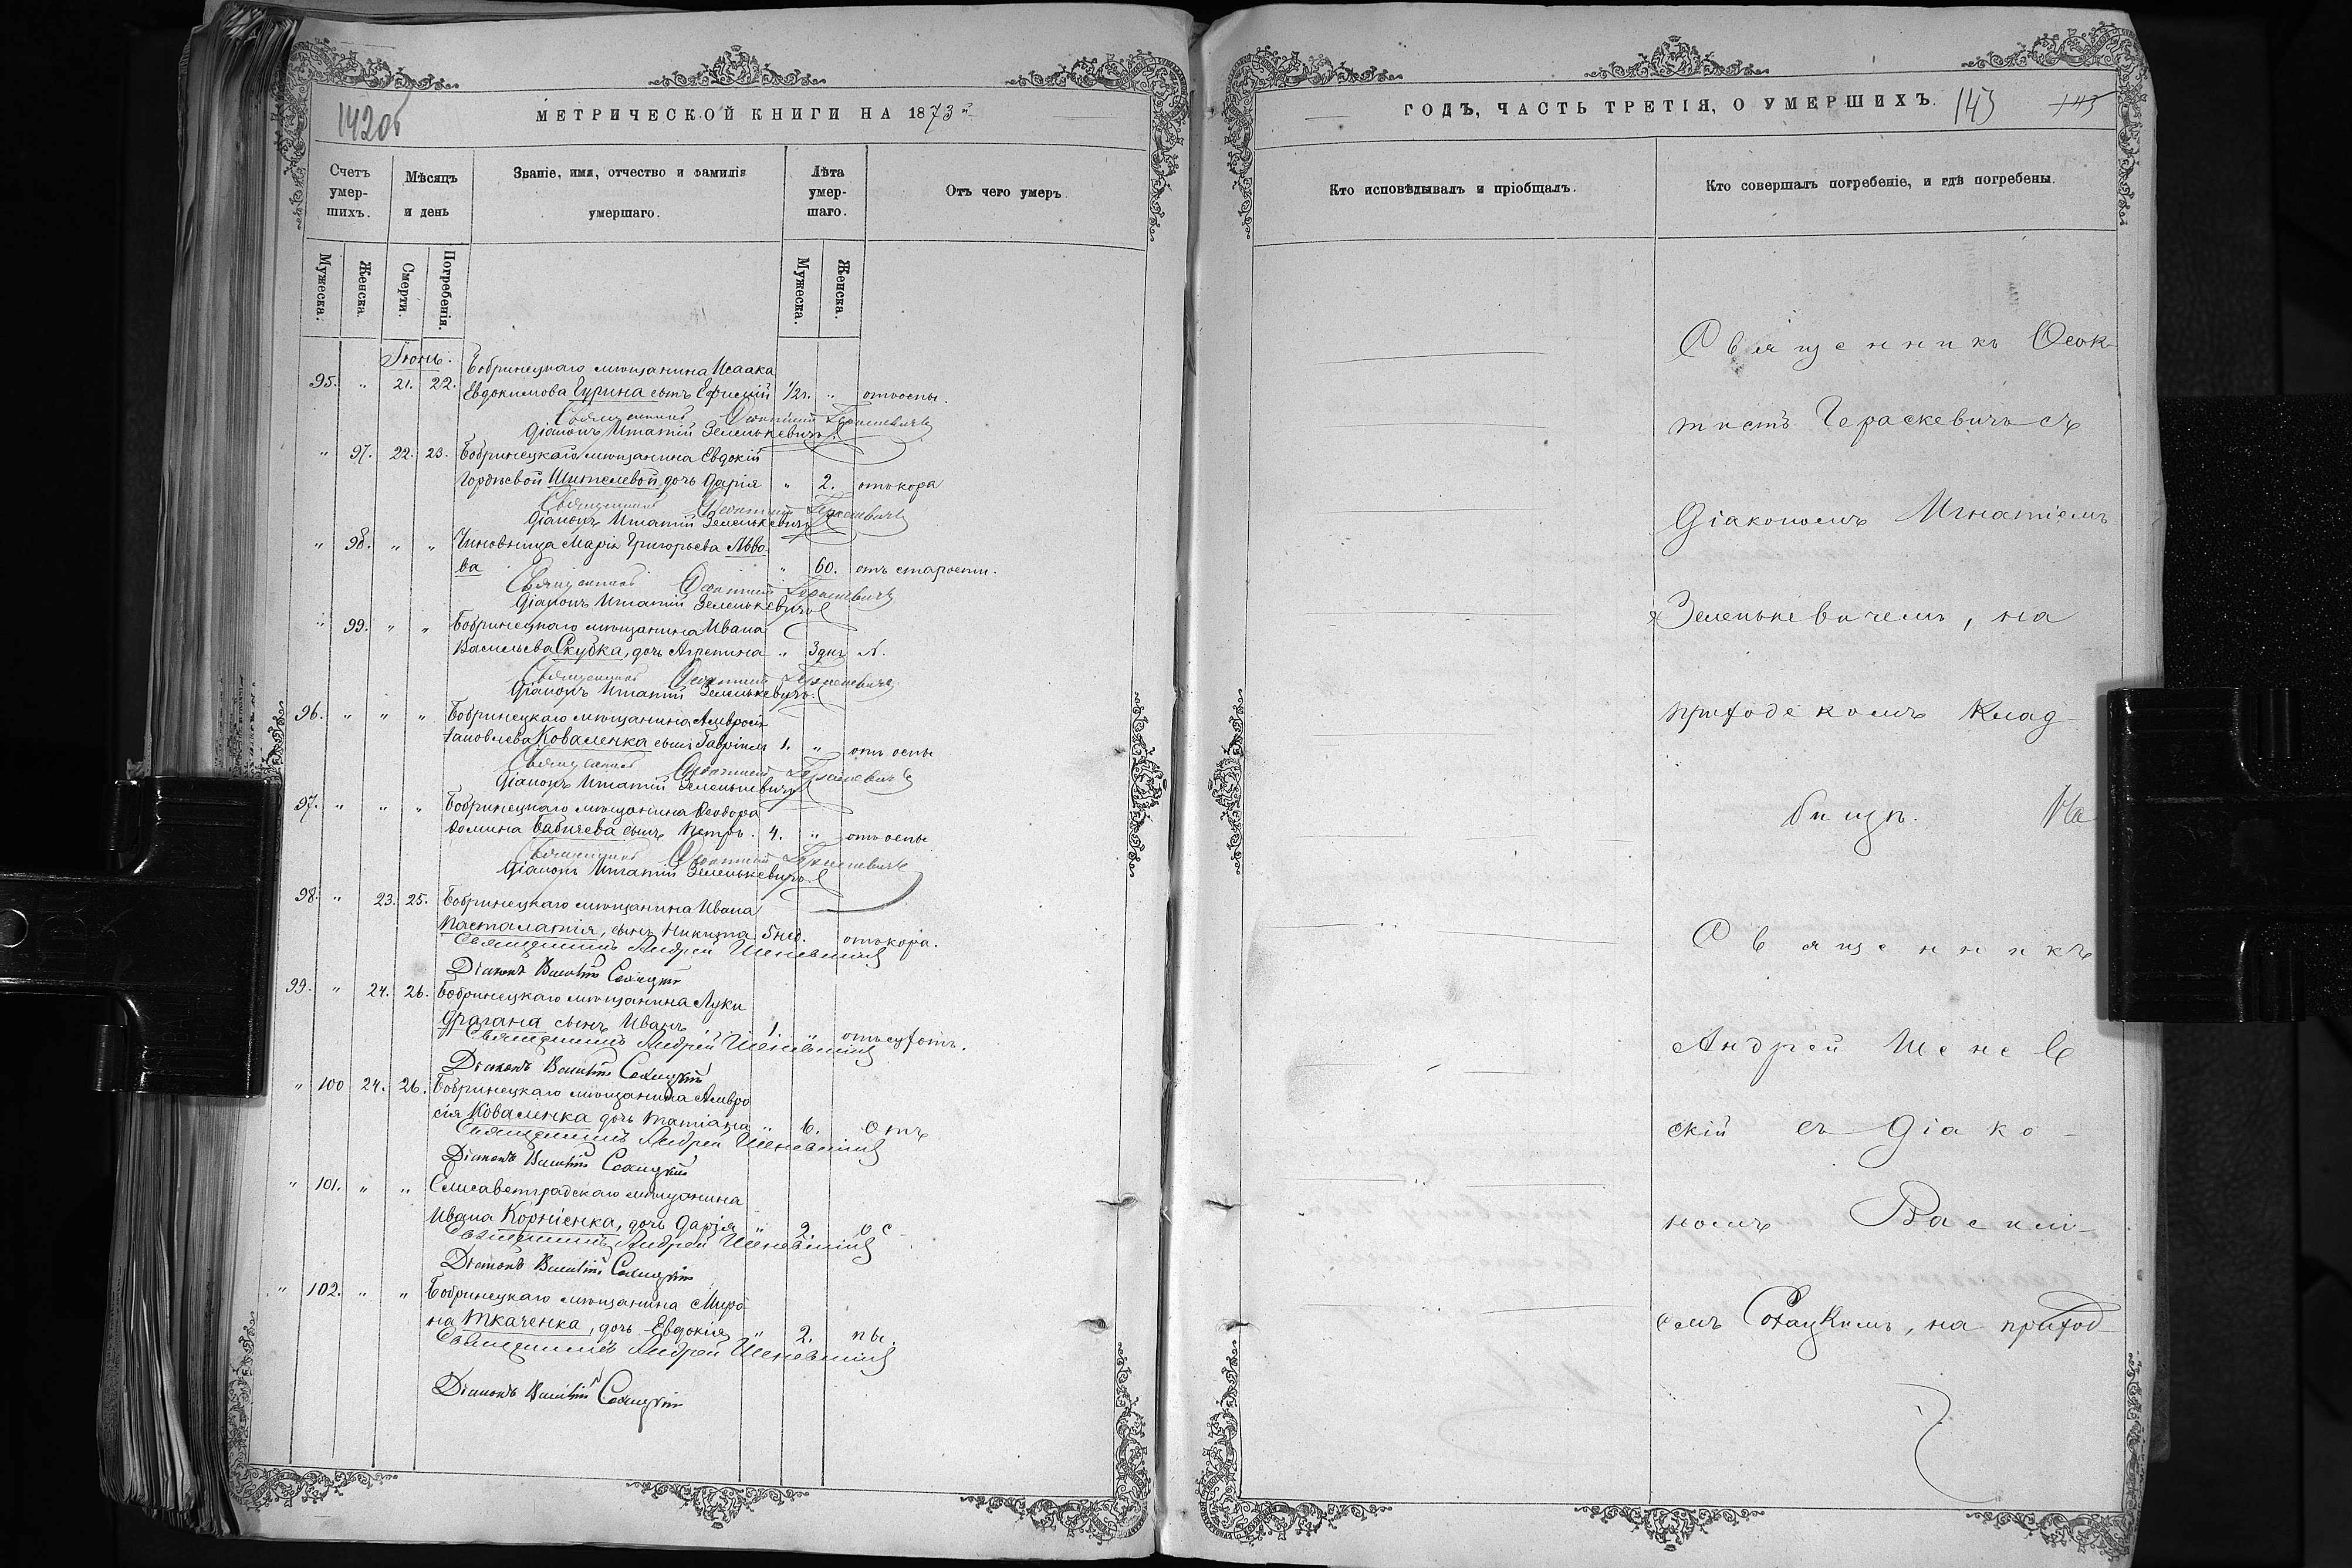 142об
МЕТРИЧЕСКОЙ КНИГИ НА 1873й
Счетъ умер-шихъ.
Мѣсяцъ и день
Званіе, имя, отчество и фамилія умершаго.
Лѣта умер-шаго.
Отъ чего умеръ.
Мужеска.
Женска.
Смерти.
Погребенія.
Мужеска.
Женска.
Іюнь.
Бобринецкаго мѣщанина Исаака
95. " 21. 22. Евдокимова Гурина сынъ Ефимій 1/2г. " отъ оспы.
Священникъ Ѳеоктистъ Гераскевичъ
Діаконъ Игнатій Зеленькевичъ
" 97. 22. 23. Бобринецкаго мѣщанина Евдокій
Гордѣевой Шителевой дочь Дарія " 2. отъ кора
Священникъ Ѳеоктистъ Гераскевичъ
Діаконъ Игнатій Зеленькевичъ
" 98. " " Чиновница Марія Григорьева Льво-
ва " 60. отъ старости.
Священникъ Ѳеоктистъ Гераскевичъ
Діаконъ Игнатій Зеленькевичъ
" 99. " " Бобринецкаго мѣщанина Ивана
Васильева Скубка, дочь Агрепина " 3 дня
Священникъ Ѳеоктистъ Гераскевичъ
Діаконъ Игнатій Зеленькевичъ
96. " " " Бобринецкаго мѣщанина Амвросія
Іаковлева Коваленка сынъ Гавріилъ 1. " отъ оспы
Священникъ Ѳеоктистъ Гераскевичъ
Діаконъ Игнатій Зеленькевичъ
97. " " " Бобринецкаго мѣщанина Ѳеодора
Домина Бабичева сынъ Петръ. 4. " отъ оспы
Священникъ Ѳеоктистъ Гераскевичъ
Діаконъ Игнатій Зеленькевичъ
98. " 23. 25. Бобринецкаго мѣщанина Ивана
Пасталатія, сынъ Никита 5 нед. отъ кора.
Священникъ Андрей Шеневскій
Діаконъ Василій Сахацкій
99. " 24. 26. Бобринецкаго мѣщанина Луки
Драгана сынъ Иванъ 1. " отъ сухотъ.
Священникъ Андрей Шеневскій
Діаконъ Василій Сахацкій
" 100 24. 26. Бобринецкаго мѣщанина Амвро
сія Коваленка дочь Татіана " 6. отъ
Священникъ Андрей Шеневскій
Діаконъ Василій Сахацкій
" 101. " " Елисаветградскаго мѣщанина
Ивана Корніенка, дочь Дарія " 2. ос-
Священникъ Андрей Шеневскій
Діаконъ Василій Сахацкій
" 102. " " Бобринецкаго мѣщанина Миро
на Ткаченка, дочь Евдокія " 2. пы
Священникъ Андрей Шеневскій
Діаконъ Василій Сахацкій
ГОДЪ, ЧАСТЬ ТРЕТІЯ, О УМЕРШИХЪ.
143
Кто исповѣдывалъ и пріобщалъ.
Кто совершалъ погребеніе, и гдѣ погребены.
Священникъ Ѳеок-
тистъ Гераскевичъ съ
Діакономъ Игнатіемъ
Зеленькевичемъ, на
приходскомъ клад-
бищѣ. На
Священникъ
Андрей Шенев
скій съ Діако-
номъ Василі-
емъ Сахацкимъ, на приход-